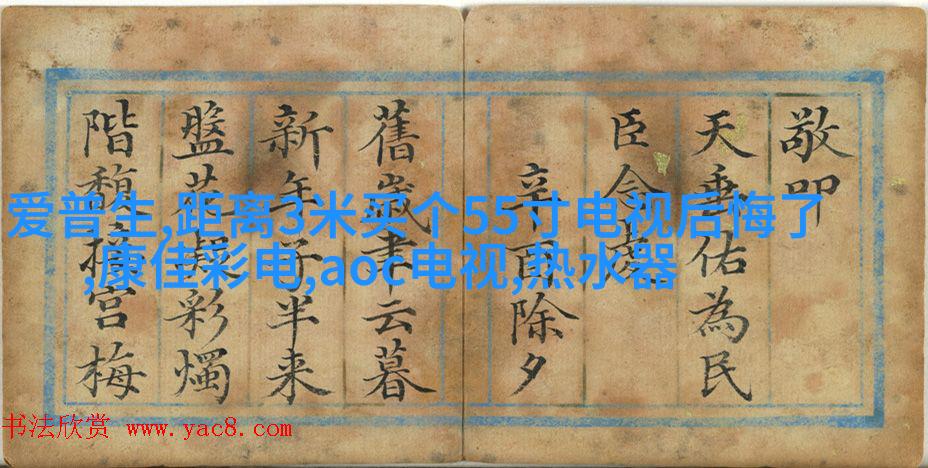 敬叩
天垂佑為民
臣令
辛酉除夕
舊歲聿云暮
新年子半来
盤花凝彩燭
階馥接宫梅
爱普生,距离3米买个55寸电视后悔了
,康佳彩电,aoc电视,热水器
书法欣赏 www.yac8.com